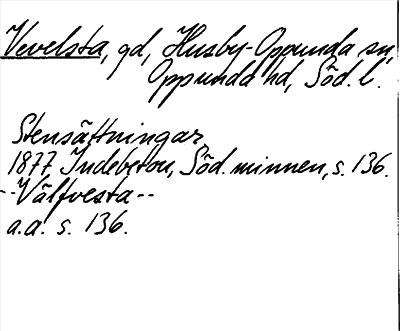 Vevelsta, gd, Husby-Oppunda sn,
Oppunda hd, Söd. l.
Stensättningar
1877 Indebetou, Söd. minnen, s. 136.
--Välfvesta--
a.a. s. 136.